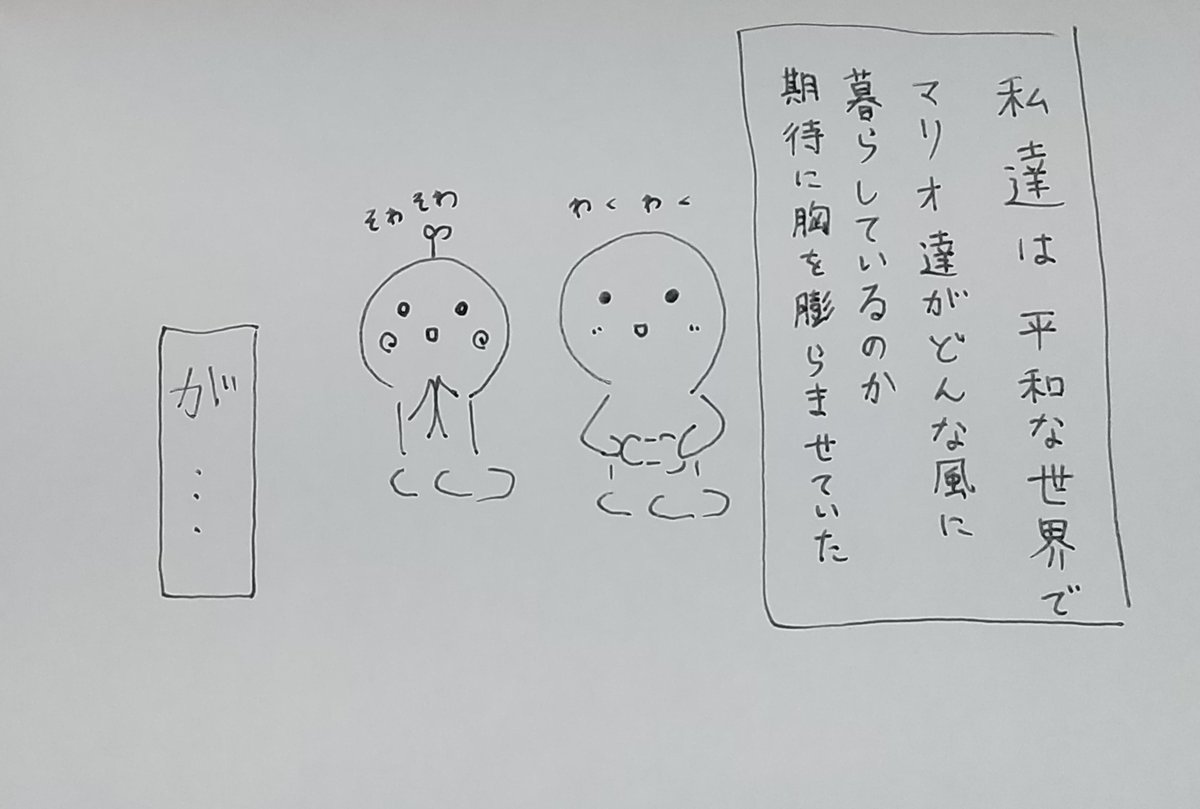 私達は平和な世界で
マリオ達がどんな風に
暮らしているのか
期待に胸を膨らませていた
わくわく
そわそわ
が…